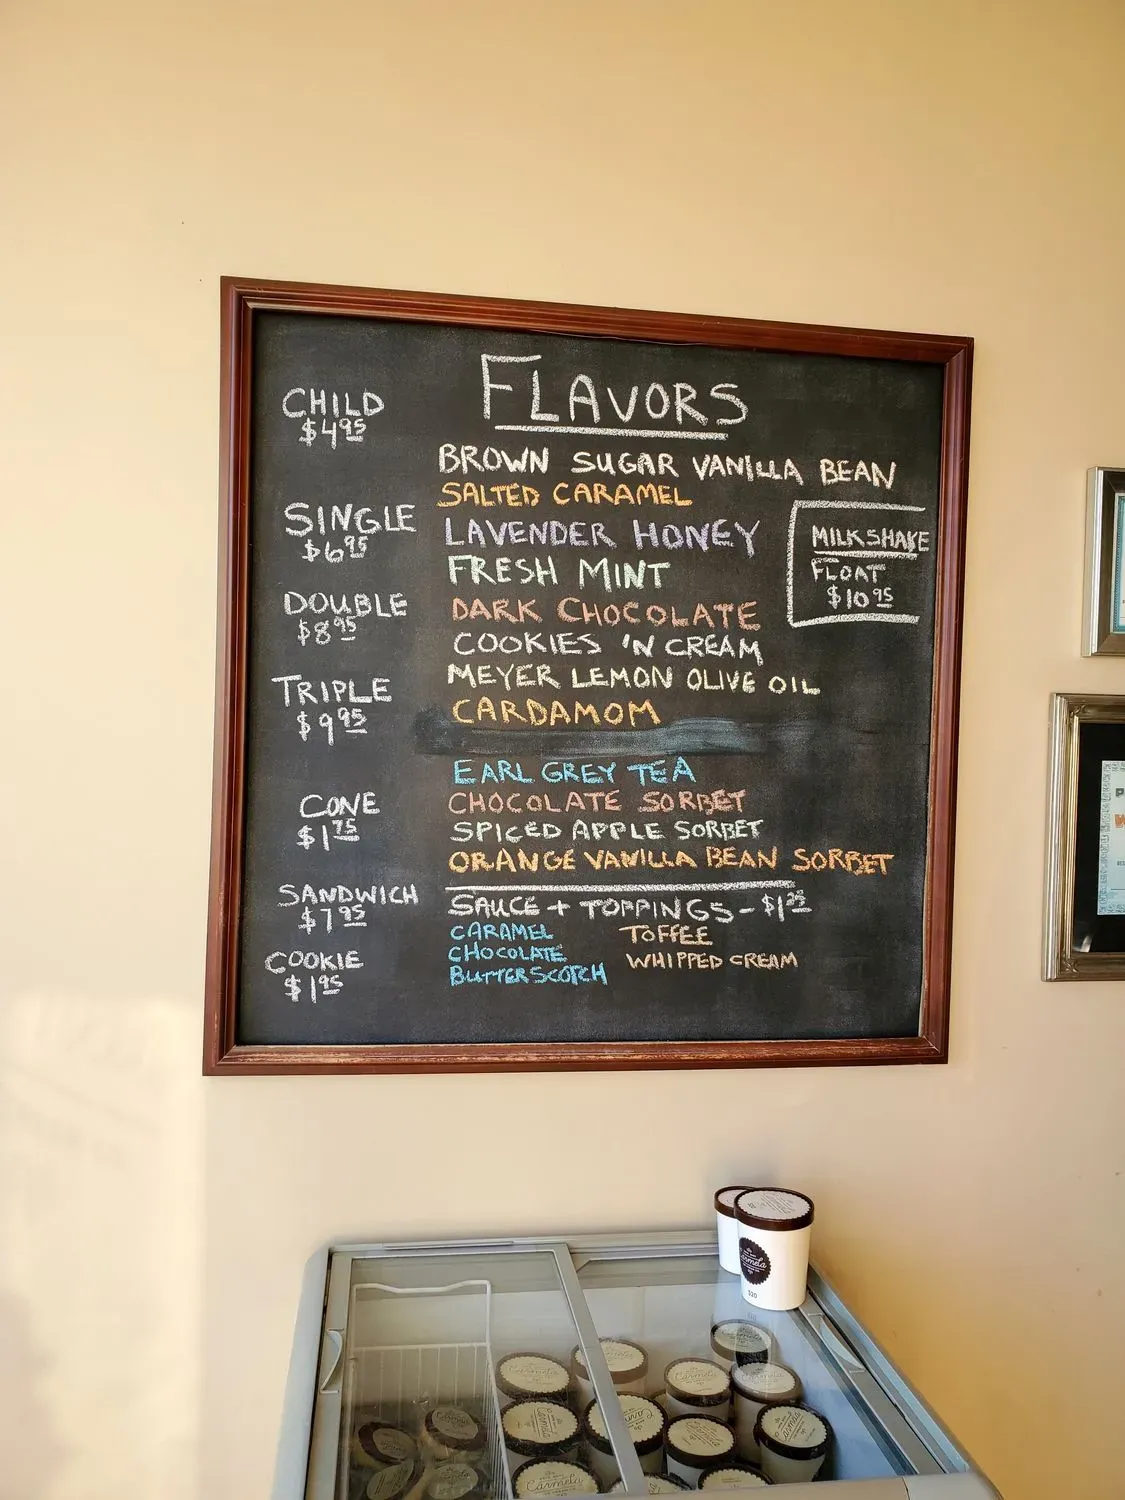 FLAVORS
CHILD
$4.95
SINGLE
$6.95
DOUBLE
$8.95
TRIPLE
$9.95
CONE
$1.75
SANDWICH
$7.95
COOKIE
$1.95
BROWN SUGAR VANILLA BEAN
SALTED CARAMEL
LAVENDER HONEY
FRESH MINT
DARK CHOCOLATE
COOKIES 'N CREAM
MEYER LEMON OLIVE OIL
CARDAMOM
EARL GREY TEA
CHOCOLATE SORBET
SPICED APPLE SORBET
ORANGE VANILLA BEAN SORBET
MILKSHAKE
FLOAT
$10.95
SAUCE + TOPPINGS - $1.25
CARAMEL
CHOCOLATE
BUTTERSCOTCH
TOFFEE
WHIPPED CREAM
$20
Carmela
Carmela
Carmela
Carmela
Carmela